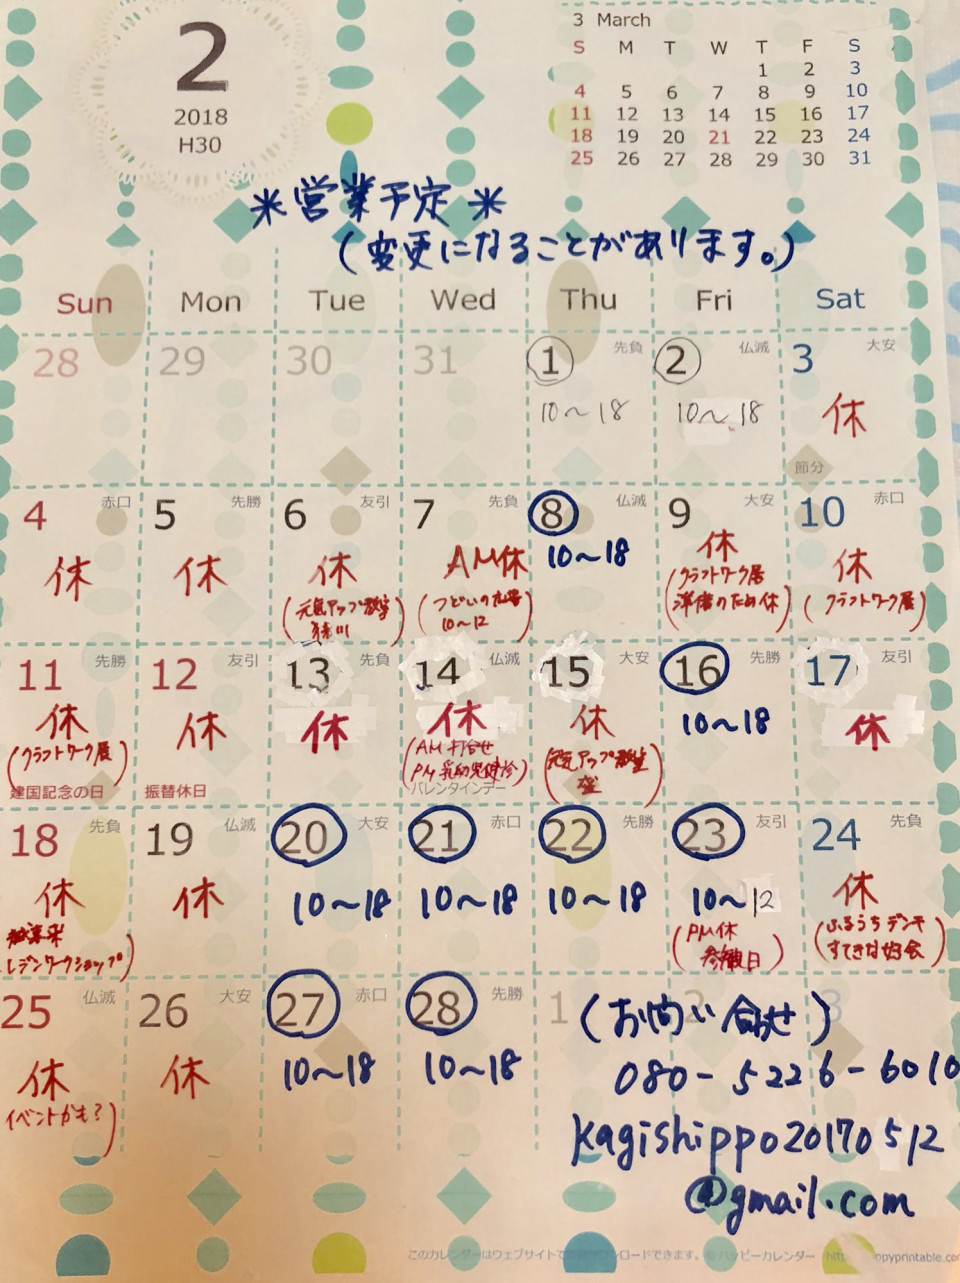 2
2018
H30
3 March
S M T W T F S
1 2 3
4 5 6 7 8 9 10
11 12 13 14 15 16 17
18 19 20 21 22 23 24
25 26 27 28 29 30 31
＊営業予定＊
(変更になることがあります。)
Sun Mon Tue Wed Thu Fri Sat
28 29 30 31 1 先負 2 仏滅 3 大安
10〜18 10〜18 休
節分
4 赤口 5 先勝 6 友引 7 先負 8 仏滅 9 大安 10 赤口
休 休 休 AM休 10〜18 休 休
(元気アップ教室 (つどいの広場 10〜12) (クラフトワーク展 準備のため休) (クラフトワーク展)
11 先勝 12 友引 13 先負 14 仏滅 15 大安 16 先勝 17 友引
休 休 休 休 休 10〜18 休
(クラフトワーク展) (AM打合せ PM乳幼児健診) (元気アップ教室
建国記念の日 振替休日 バレンタインデー
18 先負 19 仏滅 20 大安 21 赤口 22 先勝 23 友引 24 先負
休 休 10〜18 10〜18 10〜18 10〜12 休
レデンワークショップ) (PM休 参観日) (ふるうちデンキ すてきな的会)
25 仏滅 26 大安 27 赤口 28 先勝 1 2 3
休 休 10〜18 10〜18
イベントかも?)
(お問い合わせ)
080-5226-6010
kagishippo20170512
@gmail.com
このカレンダーはウェブサイトで ダウンロードできます。© ハッピーカレンダー